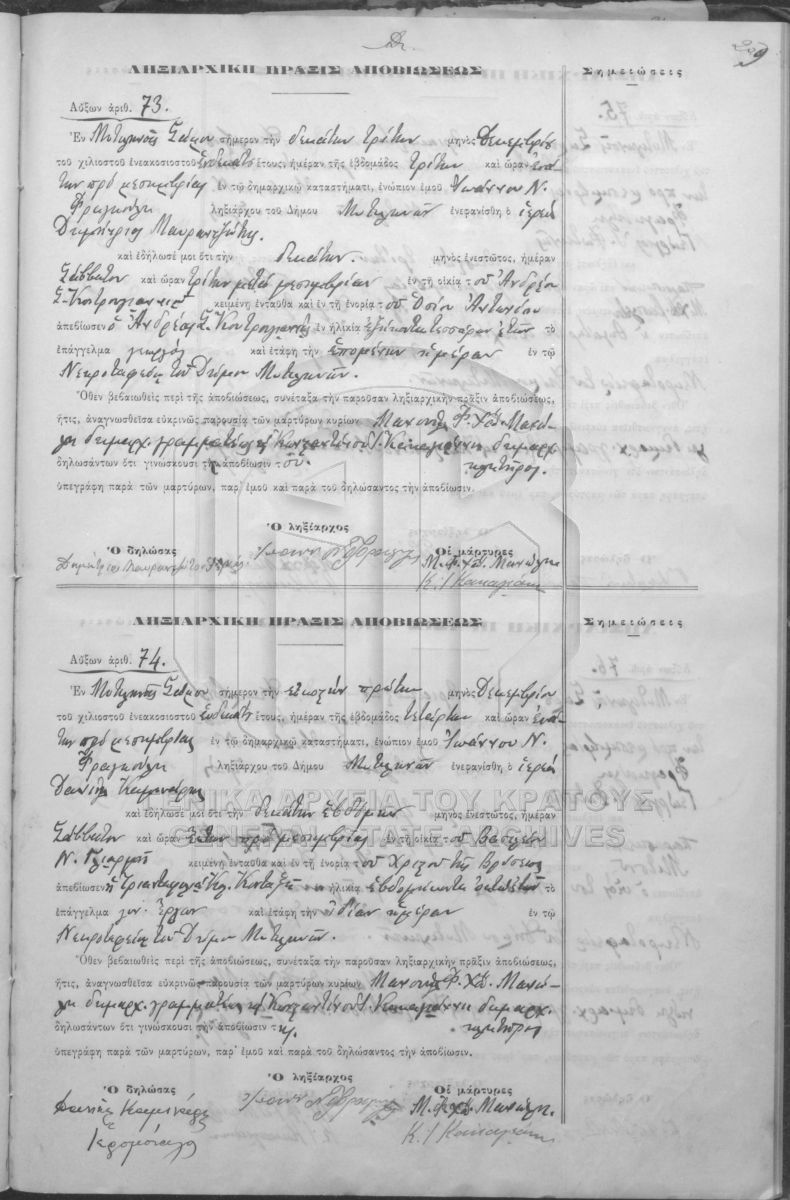 39
ΛΗΞΙΑΡΧΙΚΗ ΠΡΑΞΙΣ ΑΠΟΒΙΩΣΕΩΣ
Σημειώσεις
Αὔξων ἀριθ. 73.
Ἐν Μυτιληνιοῖς Σάμου σήμερον τὴν δεκάτην τρίτην μηνὸς Δεκεμβρίου
τοῦ χιλιοστοῦ ἐνεακοσιοστοῦ ἑνδεκάτου ἔτους, ἡμέραν τῆς ἑβδομάδος Τρίτην καὶ ὥραν ἐνά-
την πρὸ μεσημβρίας ἐν τῷ δημαρχικῷ καταστήματι, ἐνώπιον ἐμοῦ Ἰωάννου Ν.
Φραγκούλη ληξιάρχου τοῦ Δήμου Μυτιληνιῶν ἐνεφανίσθη ὁ ἱερεὺς
Δημήτριος
καὶ ἐδήλωσέ μοι ὅτι τὴν δεκάτην. μηνὸς ἐνεστῶτος, ἡμέραν
Σάββατον καὶ ὥραν τρίτην μετὰ μεσημβρίαν ἐν τῇ οἰκίᾳ τοῦ Ἀνδρέου
Σ. κειμένῃ ἐνταῦθα καὶ ἐν τῇ ἐνορίᾳ τοῦ Ὁσίου Ἀντωνίου
ἀπεβίωσεν ὁ Ἀνδρέας Σ. ἐν ἡλικίᾳ ἑξήκοντα τεσσάρων ἐτῶν τὸ
ἐπάγγελμα γεωργὸς καὶ ἐτάφη τὴν ἑπομένην ἡμέραν ἐν τῷ
Νεκροταφείῳ τοῦ Δήμου Μυτιληνιῶν.
Ὅθεν βεβαιωθεὶς περὶ τῆς ἀποβιώσεως, συνέταξα τὴν παροῦσαν ληξιαρχικὴν πρᾶξιν ἀποβιώσεως,
ἥτις, ἀναγνωσθεῖσα εὐκρινῶς παρουσίᾳ τῶν μαρτύρων κυρίων Μανουὴλ Φ. Χ΄΄ Μανώ-
λη δημαρχ. γραμματέως καὶ Κωνσταντίνου Ι. δημαρχ.
δηλωσάντων ὅτι γινώσκουσι τὴν ἀποβίωσιν τοῦ. κλητῆρος.
ὑπεγράφη παρὰ τῶν μαρτύρων, παρ' ἐμοῦ καὶ παρὰ τοῦ δηλώσαντος τὴν ἀποβίωσιν.
Ὁ ληξίαρχος
Ὁ δηλώσας
Οἱ μάρτυρες
Μ. Φ. Χ΄΄ Μανώλης
ΛΗΞΙΑΡΧΙΚΗ ΠΡΑΞΙΣ ΑΠΟΒΙΩΣΕΩΣ
Σημειώσεις
Αὔξων ἀριθ. 74.
Ἐν Μυτιληνιοῖς Σάμου σήμερον τὴν εἰκοστὴν πρώτην μηνὸς Δεκεμβρίου
τοῦ χιλιοστοῦ ἐνεακοσιοστοῦ ἑνδεκάτου ἔτους, ἡμέραν τῆς ἑβδομάδος τετάρτην καὶ ὥραν ἐνά-
την πρὸ μεσημβρίας ἐν τῷ δημαρχικῷ καταστήματι, ἐνώπιον ἐμοῦ Ἰωάννου Ν.
Φραγκούλη ληξιάρχου τοῦ Δήμου Μυτιληνιῶν ἐνεφανίσθη ὁ ἱερεὺς
Δανιὴλ
ΓΕΝΙΚΑ ΑΡΧΕΙΑ ΤΟΥ ΚΡΑΤΟΥΣ
GENERAL STATE ARCHIVES
καὶ ἐδήλωσέ μοι ὅτι τὴν δεκάτην ἑβδόμην μηνὸς ἐνεστῶτος, ἡμέραν
Σάββατον καὶ ὥραν ἕκτην πρὸ μεσημβρίας ἐν τῇ οἰκίᾳ τοῦ Βασιλείου
Ν. κειμένῃ ἐνταῦθα καὶ ἐν τῇ ἐνορίᾳ τοῦ Χριστοῦ τῆς Βρύσεως
ἀπεβίωσεν ἡ ἐν ἡλικίᾳ ἑβδομήκοντα ὀκτὼ ἐτῶν τὸ
ἐπάγγελμα γυν. ἔργων καὶ ἐτάφη τὴν ἰδίαν ἡμέραν ἐν τῷ
Νεκροταφείῳ τοῦ Δήμου Μυτιληνιῶν.
Ὅθεν βεβαιωθεὶς περὶ τῆς ἀποβιώσεως, συνέταξα τὴν παροῦσαν ληξιαρχικὴν πρᾶξιν ἀποβιώσεως,
ἥτις, ἀναγνωσθεῖσα εὐκρινῶς παρουσίᾳ τῶν μαρτύρων κυρίων Μανουὴλ Φ. Χ΄΄ Μανώ-
λη δημαρχ. γραμματέως καὶ Κωνσταντίνου Ι. δημαρχ.
δηλωσάντων ὅτι γινώσκουσι τὴν ἀποβίωσιν της. κλητῆρος
ὑπεγράφη παρὰ τῶν μαρτύρων, παρ' ἐμοῦ καὶ παρὰ τοῦ δηλώσαντος τὴν ἀποβίωσιν.
Ὁ ληξίαρχος
Ὁ δηλώσας
Οἱ μάρτυρες
Μ. Φ. Χ΄΄ Μανώλης.